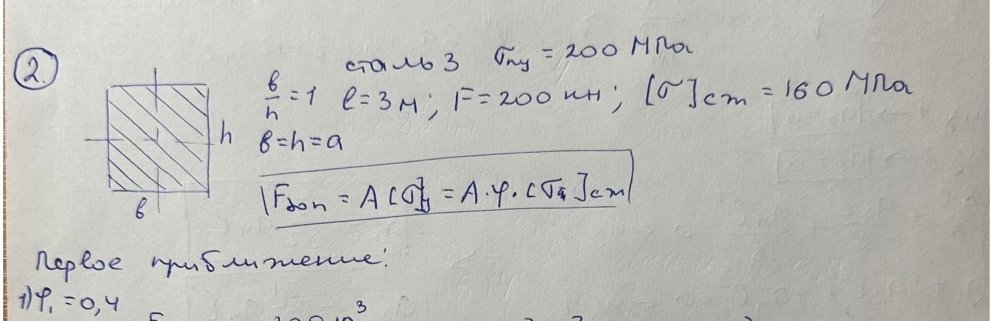 2.
сталь 3 σпу = 200 МПа
в/h = 1 l = 3 м; F = 200 кН; [σ]ст = 160 МПа
h
в = h = a
в
Fдоп = A[σ]у = A·φ·[σ]ст
Первое приближение:
1) φ₁ = 0,4